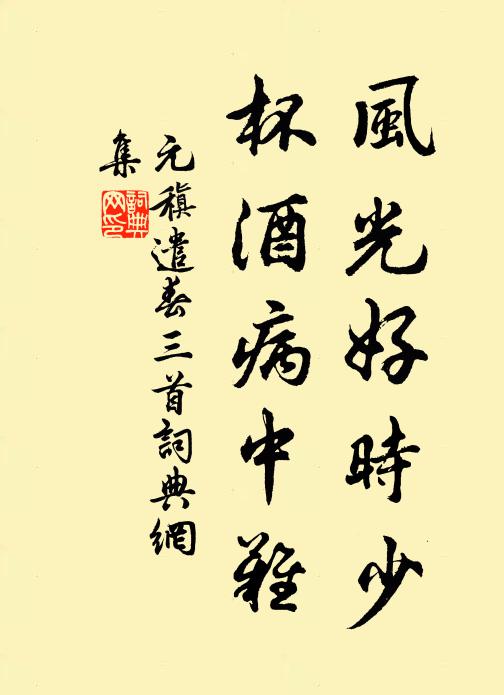 風光好時少
杯酒病中難
元稹遣春三首詞典網
集
詞典網印